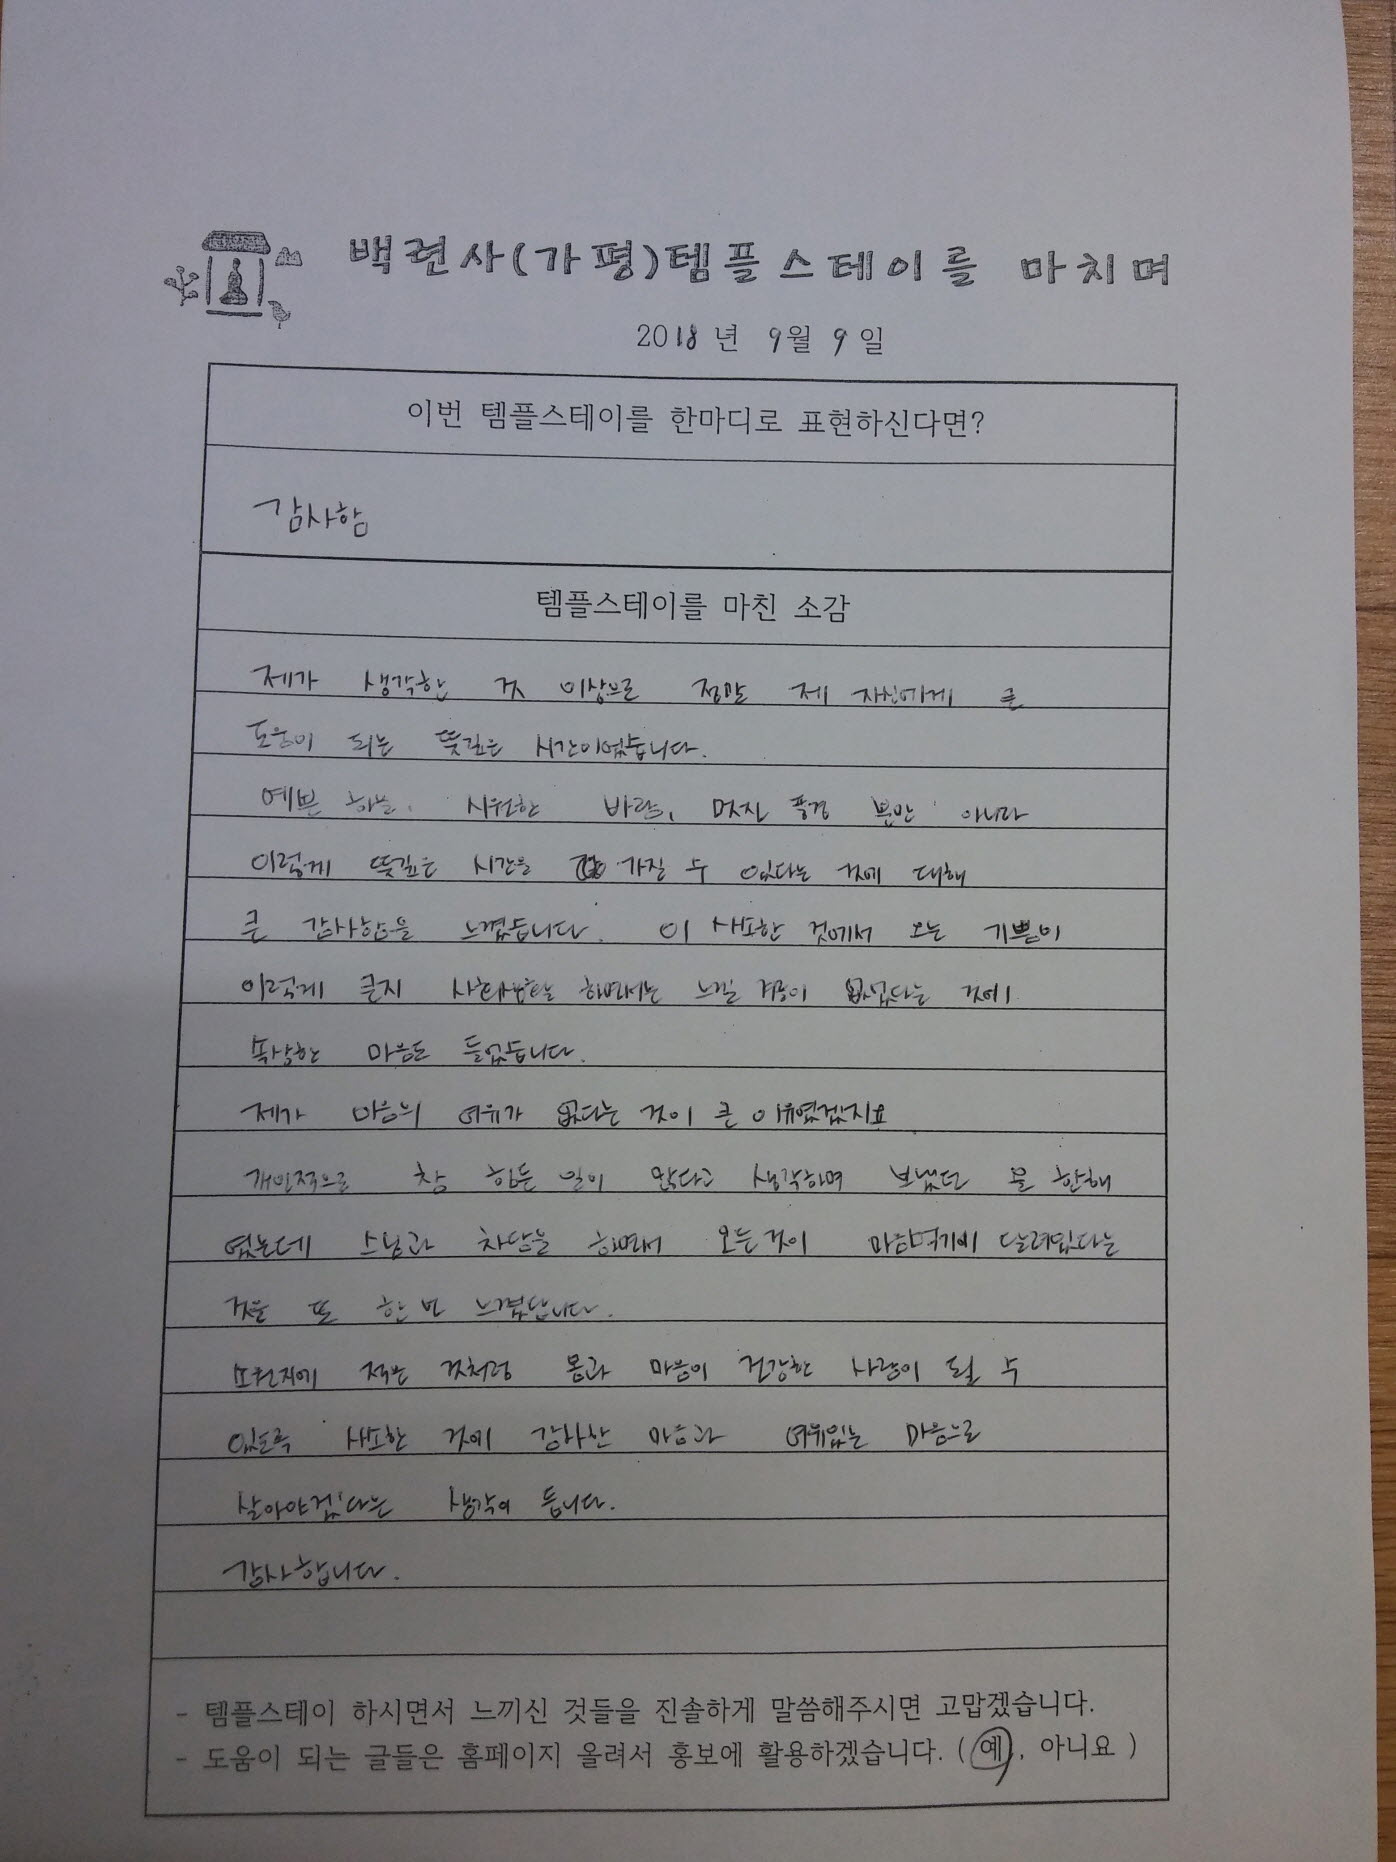 백련사(가평)템플스테이를 마치며
2018년 9월 9일
이번 템플스테이를 한마디로 표현하신다면?
감사함
템플스테이를 마친 소감
제가 생각한 것 이상으로 정말 제 자신에게 큰
도움이 되는 뜻깊은 시간이었습니다.
예쁜 하늘, 시원한 바람, 멋진 풍경 뿐만 아니라
이렇게 뜻깊은 시간을 가질 수 있다는 것에 대해
큰 감사함을 느꼈습니다. 이 사소한 것에서 오는 기쁨이
이렇게 큰지 사회생활을 하면서는 느낄 겨를이 없었다는 것에
속상한 마음도 들었습니다.
제가 마음의 여유가 없다는 것이 큰 이유였겠지요
개인적으로 참 힘든 일이 많다고 생각하며 보냈던 올 한해
였는데 스님과 차담을 하면서 모든것이 마음먹기에 달려있다는
것을 또 한번 느꼈답니다.
소원지에 적은 것처럼 몸과 마음이 건강한 사람이 될 수
있도록 사소한 것에 감사한 마음과 여유있는 마음으로
살아야겠다는 생각이 듭니다.
감사합니다.
- 템플스테이 하시면서 느끼신 것들을 진솔하게 말씀해주시면 고맙겠습니다.
- 도움이 되는 글들은 홈페이지 올려서 홍보에 활용하겠습니다. ( 예, 아니요 )